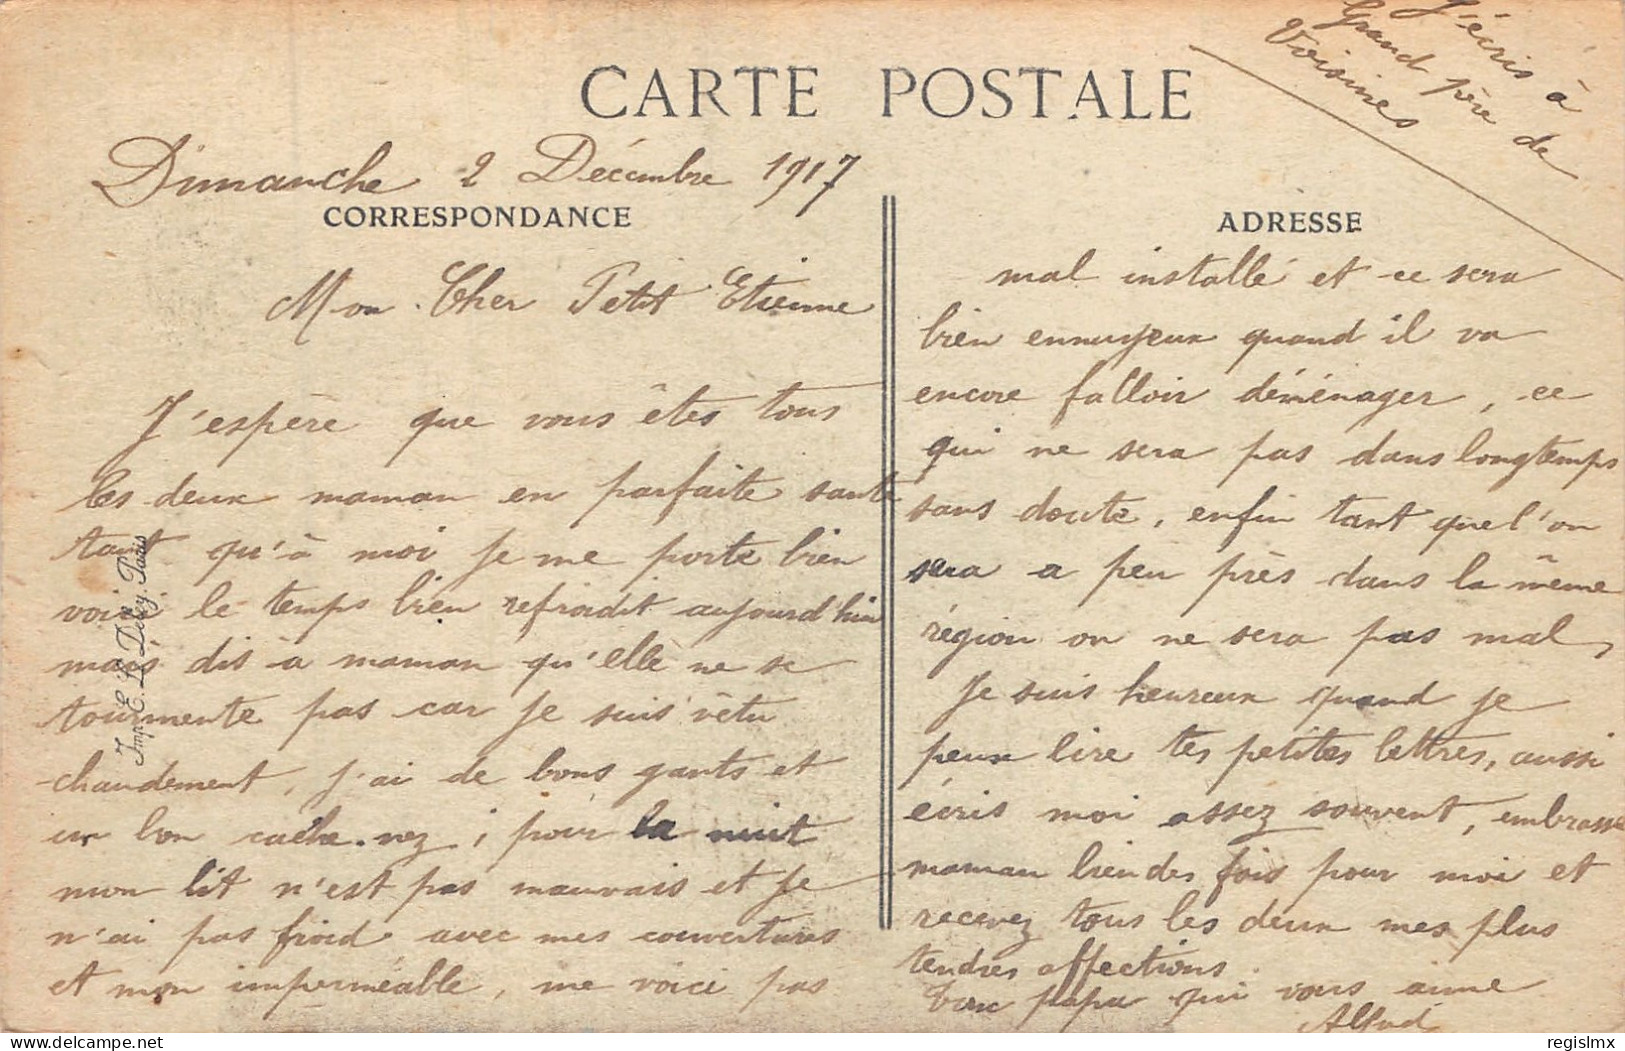 J'écris à
Grand père de
Voisines
CARTE POSTALE
Dimanche 2 Décembre 1917
CORRESPONDANCE
Mon Cher Petit Etienne
J'espère que vous êtes tous
les deux maman en parfaite santé
tant qu'à moi je me porte bien
voici le temps bien refroidit aujourd'hui
mais dis à maman qu'elle ne se
tourmente pas car je suis vêtu
chaudement, j'ai de bons gants et
un bon cache-nez; pour la nuit
mon lit n'est pas mauvais et je
n'ai pas froid avec mes couvertures
et mon imperméable, me voici pas
ADRESSE
mal installé et ce sera
bien ennuyeux quand il va
encore falloir déménager, ce
qui ne sera pas dans longtemps
sans doute, enfin tant que l'on
sera a peu près dans la même
région on ne sera pas mal,
Je suis heureux quand je
peux lire tes petites lettres, aussi
écris moi assez souvent, embrasse
maman bien des fois pour moi et
recevez tous les deux mes plus
tendres affections.
Ton papa qui vous aime
Alfred
Imp. E. Le Deley, Paris
regislmx
delcampe.net